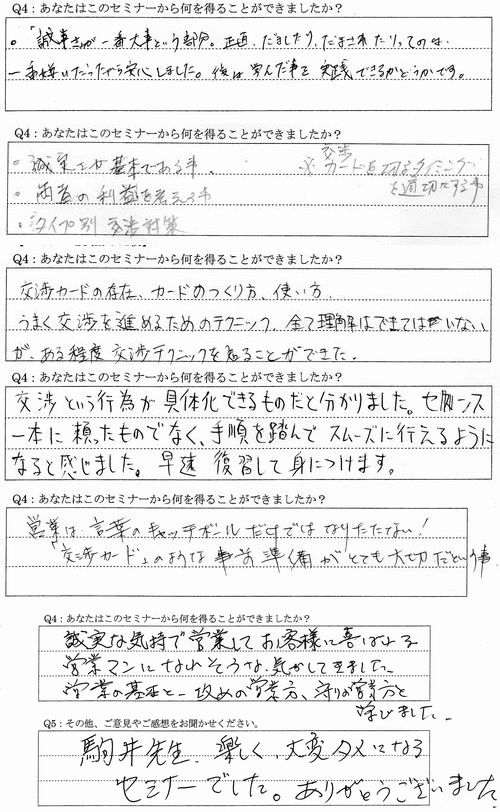 Q4：あなたはこのセミナーから何を得ることができましたか？
。「誠実さが一番大事という部分。正直、だましたり、だまされたりってのは
一番嫌いだったから安心しました。後は学んだ事を実践できるかどうかです。
Q4：あなたはこのセミナーから何を得ることができましたか？
・誠実さが基本である事、
※交渉カードを切るタイミング
を適切にする事
・両者の利益を考える事
・タイプ別交渉対策
Q4：あなたはこのセミナーから何を得ることができましたか？
交渉カードの存在、カードのつくり方、使い方、
うまく交渉を進めるためのテクニック、全て理解はできてはいない
が、ある程度交渉テクニックを知ることができた。
Q4：あなたはこのセミナーから何を得ることができましたか？
交渉という行為が具体化できるものだと分かりました。センス
一本に頼ったものでなく、手順を踏んでスムーズに行えるように
なると感じました。早速復習して身につけます。
Q4：あなたはこのセミナーから何を得ることができましたか？
営業は言葉のキャッチボールだけではなりたたない！
「交渉カード」のような事前準備がとても大切だという事
Q4：あなたはこのセミナーから何を得ることができましたか？
誠実な気持で営業してお客様に喜ばれる
営業マンになれそうな気がしてきました
営業の基本と 攻めの営業方、守りの営業方と
学びました。
Q5：その他、ご意見やご感想をお聞かせください。
駒井先生、楽しく、大変タメになる
セミナーでした。ありがとうございました